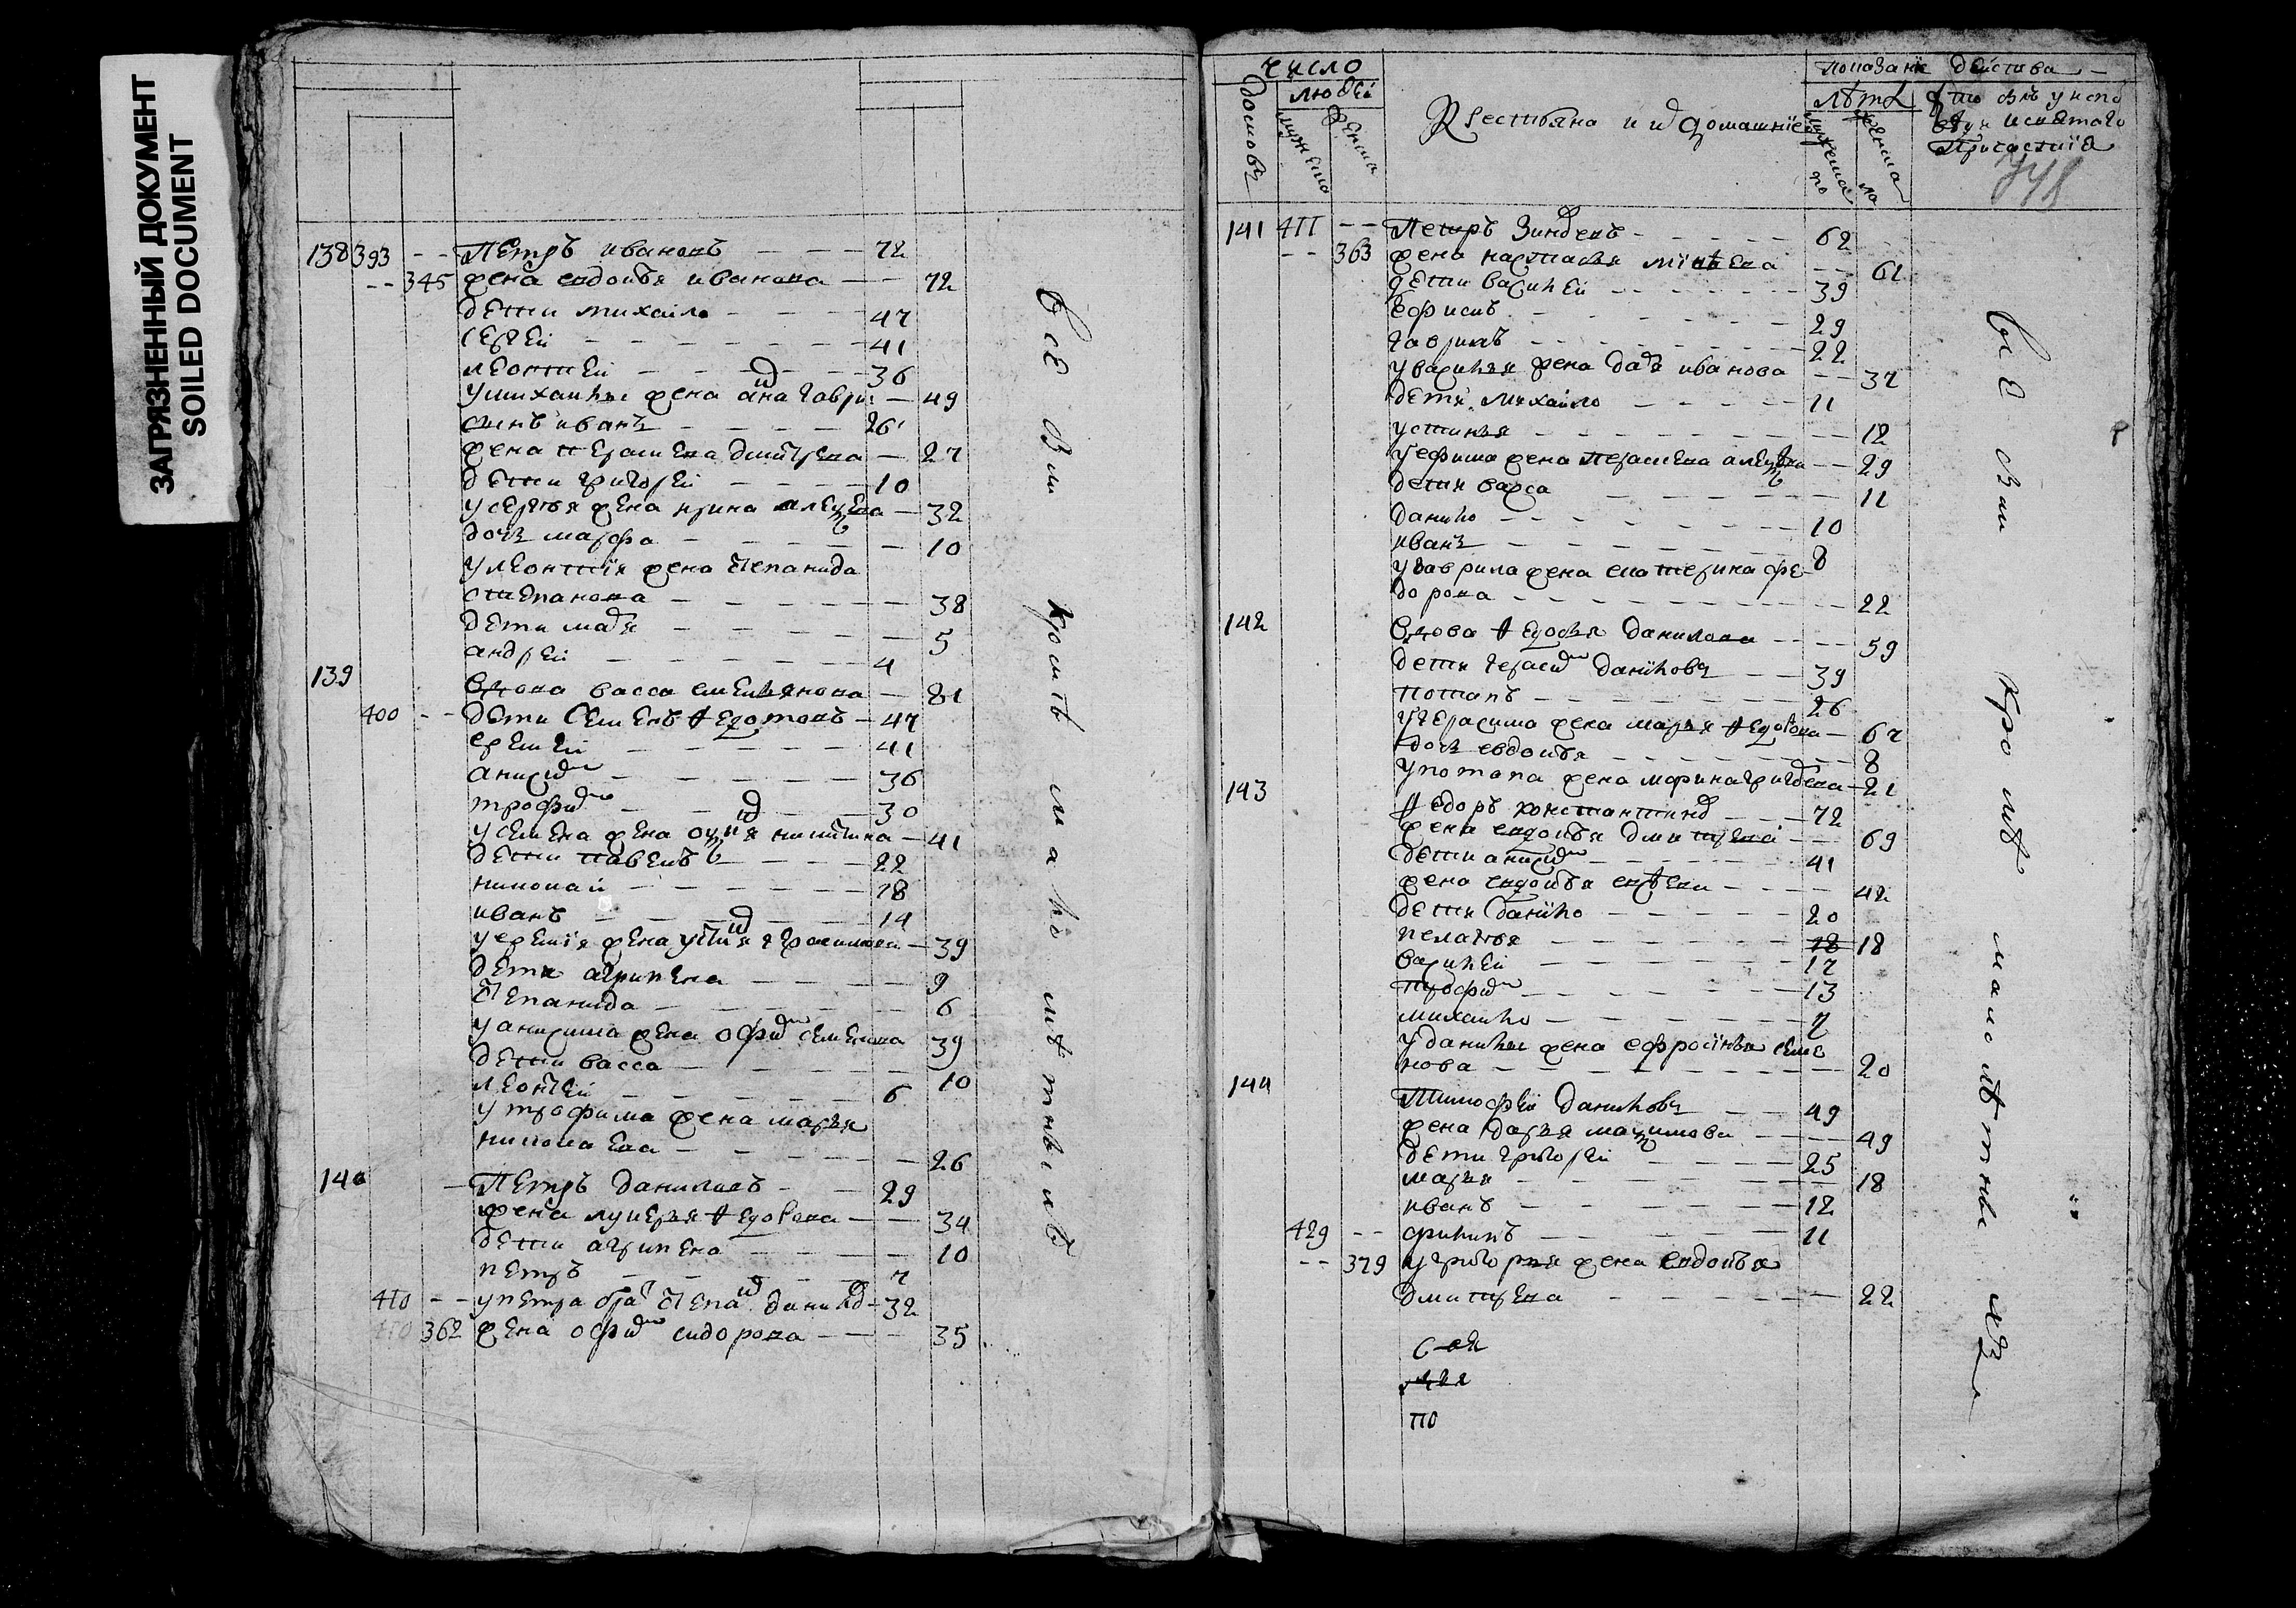 ЗАГРЯЗНЕННЫЙ ДОКУМЕНТ
SOILED DOCUMENT
138 393 -- Петръ ивановъ 72
-- 345 жена евдокѣя иванова 72
дети михаило 47
сергеи 41
леонтеи 36
у михаилы жена анна гаври 49
сынъ иванъ 26
жена парасковья дмитрева 27
дети григореи 10
у сергѣя жена ирина алеѯева 32
дочь марфа 10
у леонтия жена степанида
степанова 38
дети марья 5
андреи 4
139 вдова васса емельянова 81
400 -- дети семенъ ѳедотовъ 47
еремеи 41
анисим 36
трофим 30
у семена жена никитина 41
дети павелъ 22
николаи 18
иванъ 14
у еремѣя жена устинья герасимова 39
дети агрипена 9
степанида 6
у анисима жена офим семенова 39
дети васса 10
леонтеи 6
у трофима жена марья
николаева 26
140 Петръ даниловъ 29
жена лукерья ѳедорова 34
дети агрипена 10
петръ 7
410 -- у петра брат степан данилов 32
410 362 жена офим сидорова 35
все вѣ кромѣ малолѣтныхъ
число
домовъ
людеи
мужеска
женска
Крестьяна и их домашние
показание деиства
лѣта
мужеска по
женска по
кто былъ у исповеди и святаго
причастия
141 411 -- Петръ Зиновевъ 62
-- 363 жена настасья минѣева 61
дети василеи 39
ефимъ 29
гаврилъ 22
у василья жена дарья иванова 37
дети михаило 11
устинья 12
у ефима жена алеѯеева 29
дети варвара 11
данило 10
иванъ 8
у гаврила жена екатерина фе-
дорова 22
142 вдова ѳедосья данилова 59
дети герасим даниловъ 39
потапъ 26
у герасима жена марья ѳедорова 67
дочь евдокѣя 8
у потапа жена марина григорева 21
143 ѳедоръ константинов 72
жена евдокѣя дмитрева 69
дети анисим 41
жена евдокѣя 42
дети данило 20
пелагѣя 18 18
василеи 17
трофим 13
михаило 7
у данилы жена ефросинья семе
нова 20
144 Тимофеи даниловъ 49
жена дарья маѯимова 49
дети григореи 25
марья 18
иванъ 12
429 -- филипъ 11
-- 379 у григорья жена евдокѣя
дмитрева 22
все кромѣ малолѣтны
по